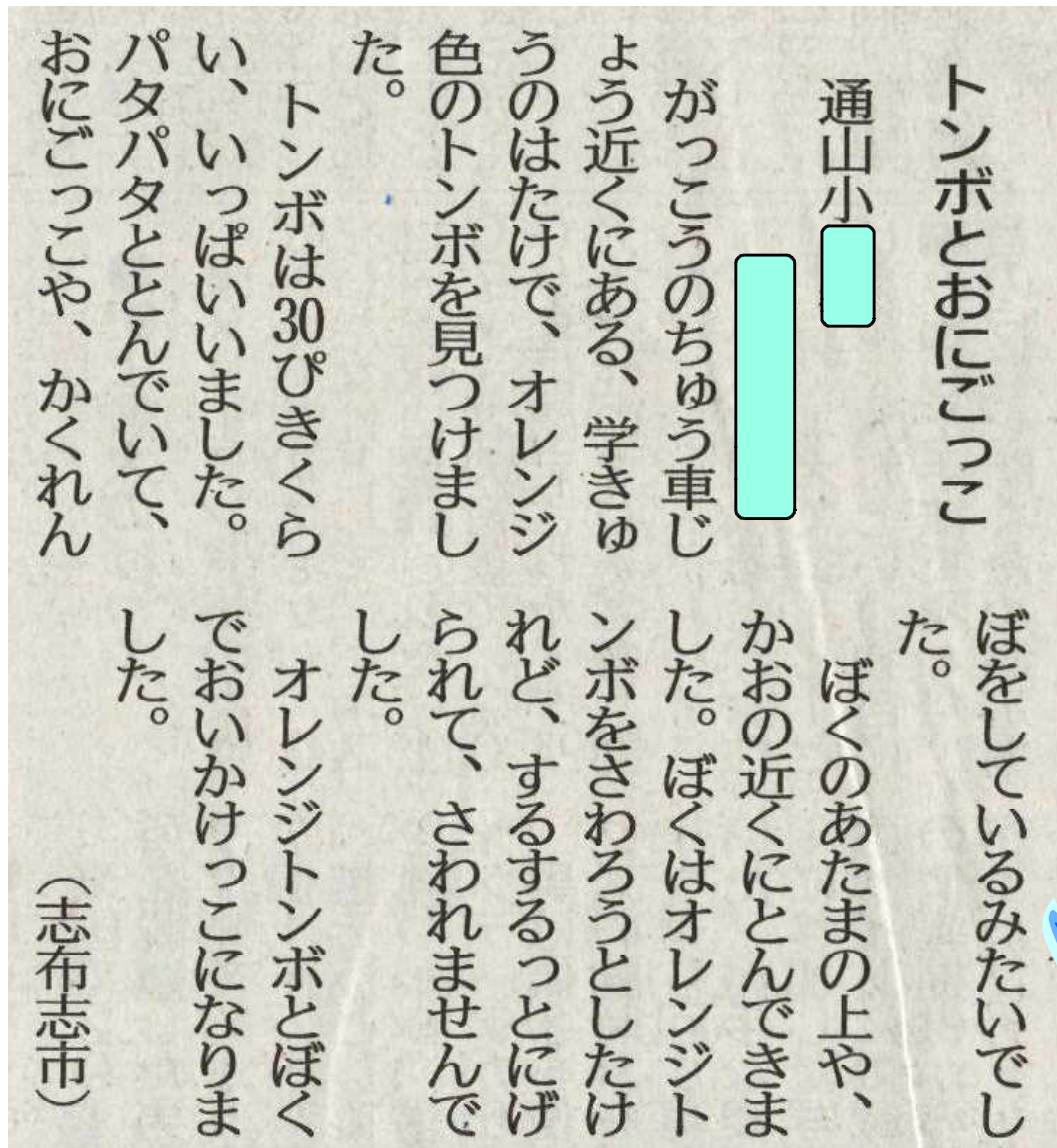 トンボとおにごっこ
通山小
　がっこうのちゅう車じ
ょう近くにある、学きゅ
うのはたけで、オレンジ
色のトンボを見つけまし
た。
　トンボは30ぴきくら
い、いっぱいいました。
パタパタととんでいて、
おにごっこや、かくれん
ぼをしているみたいでし
た。
　ぼくのあたまの上や、
かおの近くにとんできま
した。ぼくはオレンジト
ンボをさわろうとしたけ
れど、するするっとにげ
られて、さわれませんで
した。
　オレンジトンボとぼく
でおいかけっこになりま
した。
（志布志市）